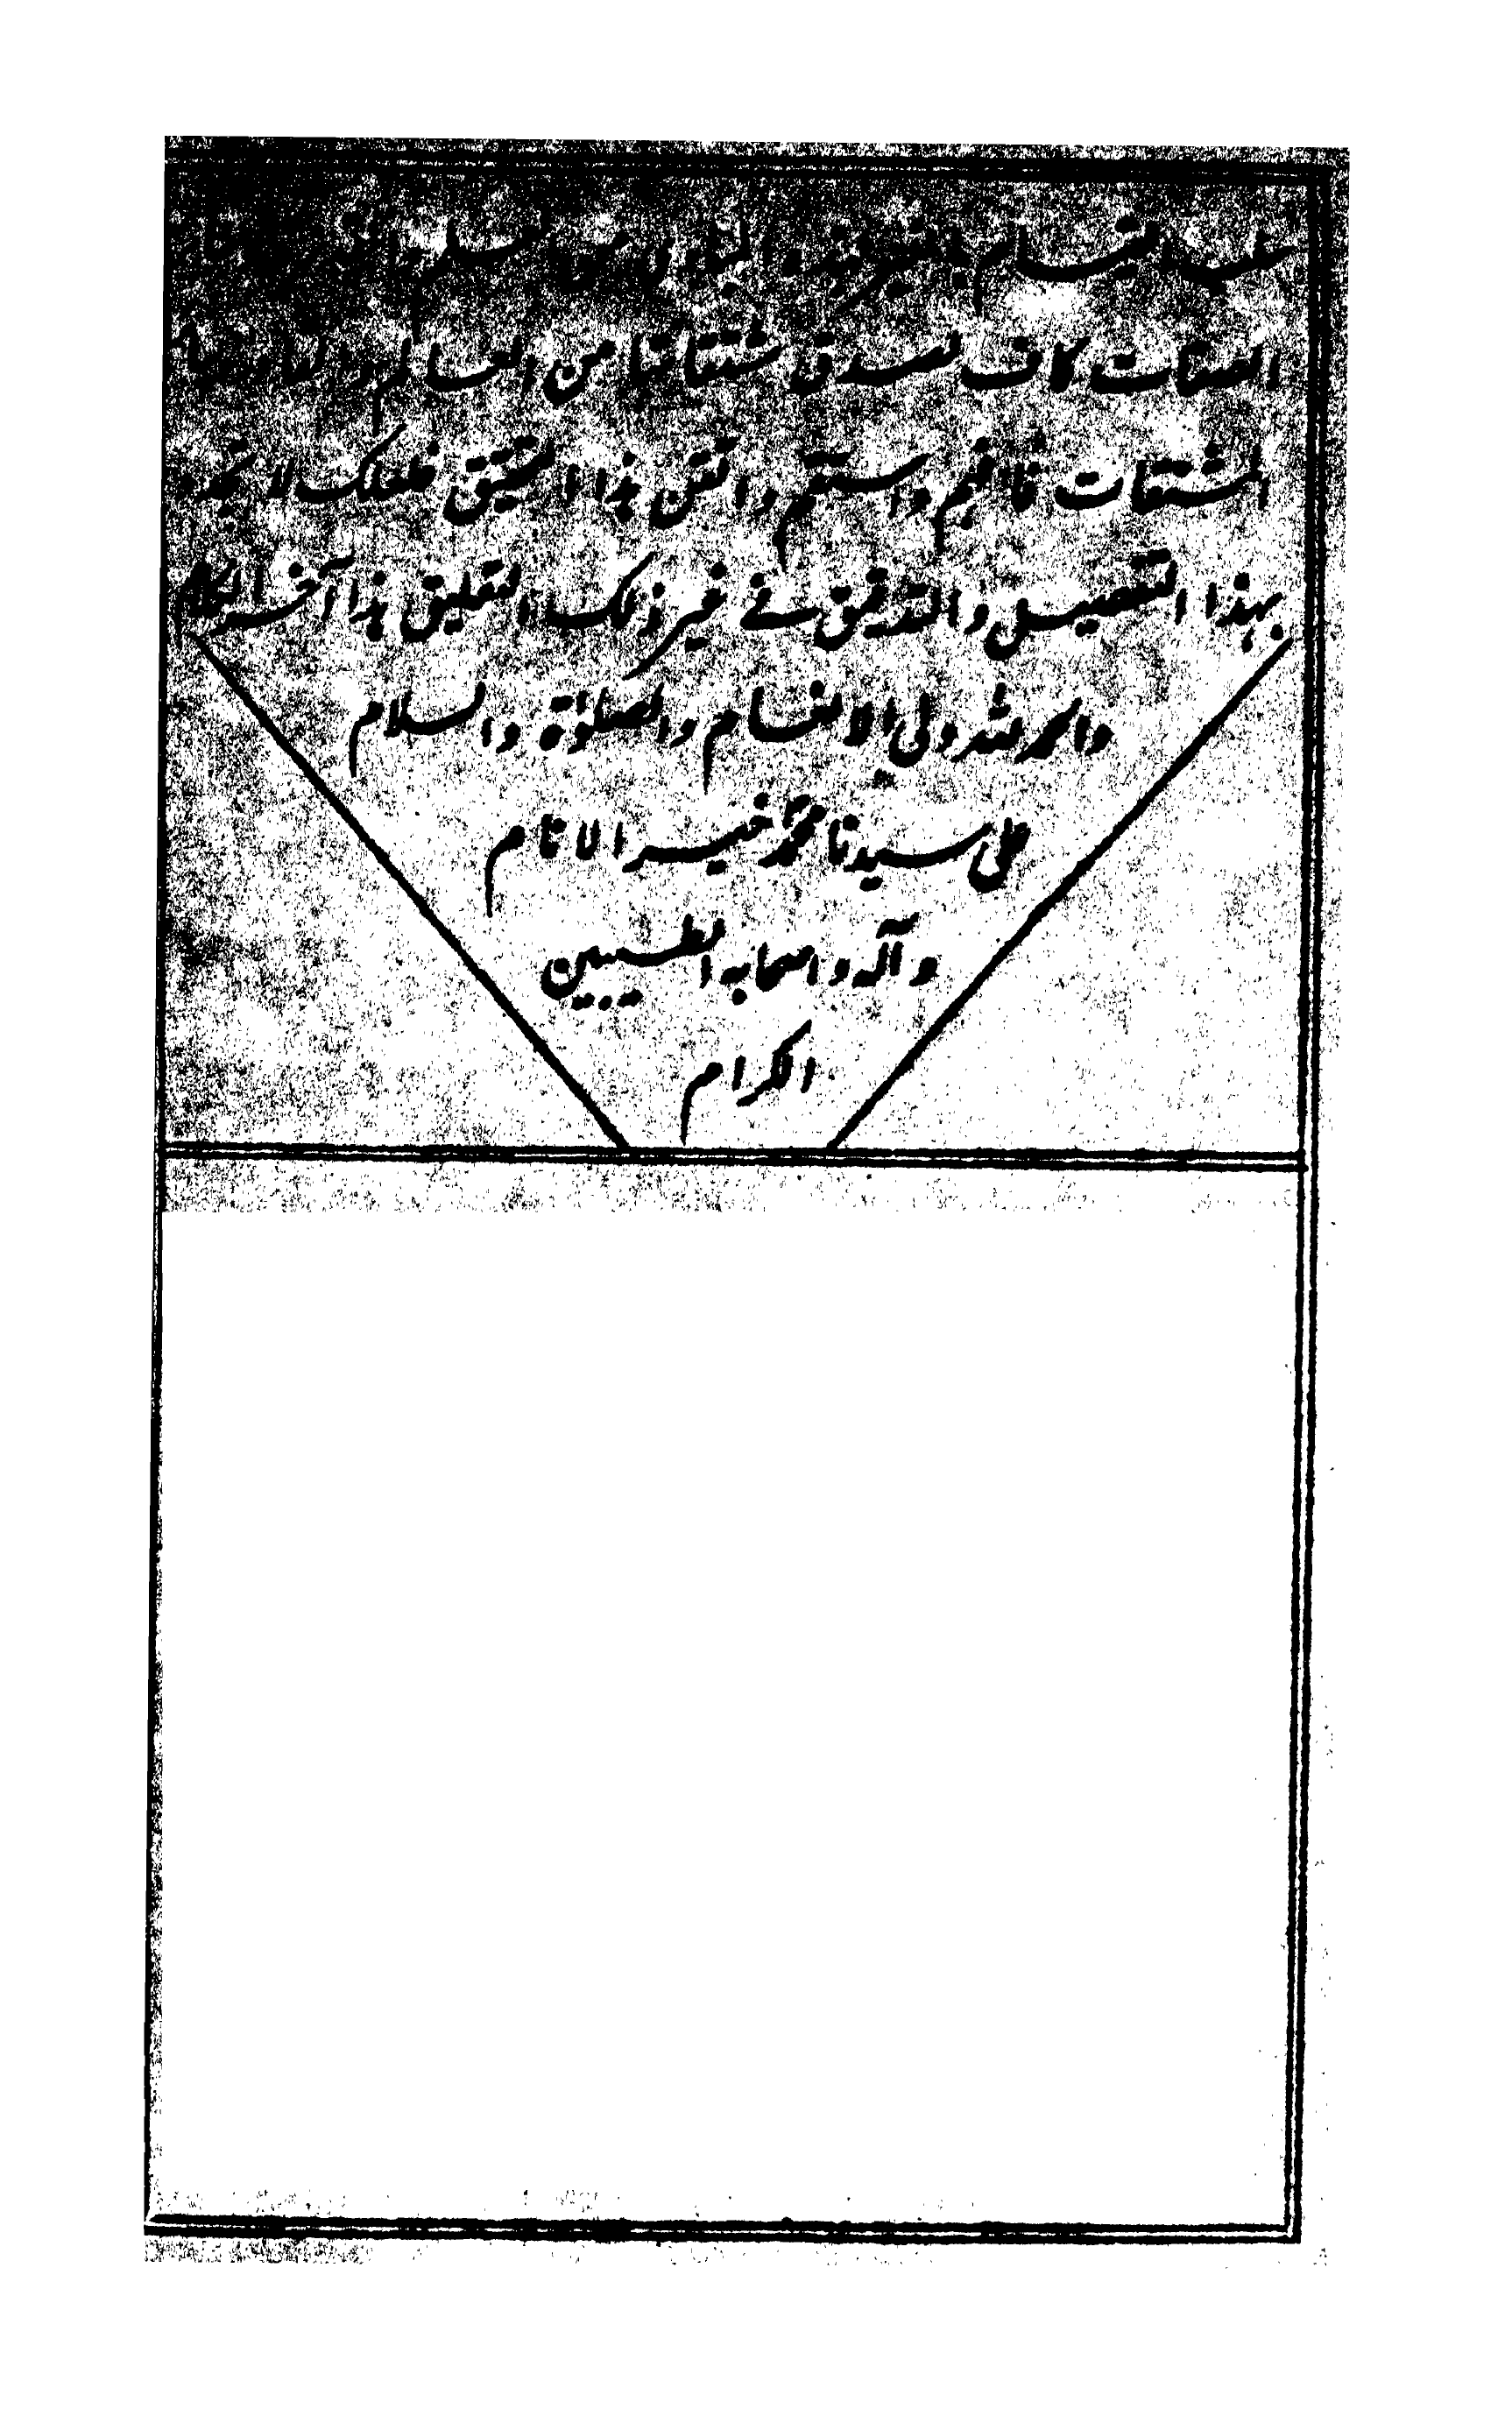 القيام
الصفات كاف لصدق مشتقاتها من العالم
المشتقات فافهم واستقم واتقن هذا التحقيق فلعلك لا تجده
بهذا التفصيل والتدقيق في غير ذلك التعليق هذا آخر الكلام
والحمد لله ولي الانعام والصلوٰة والسلام
على سيدنا محمد خير الانام
وآله واصحابه الطيبين
الكرام